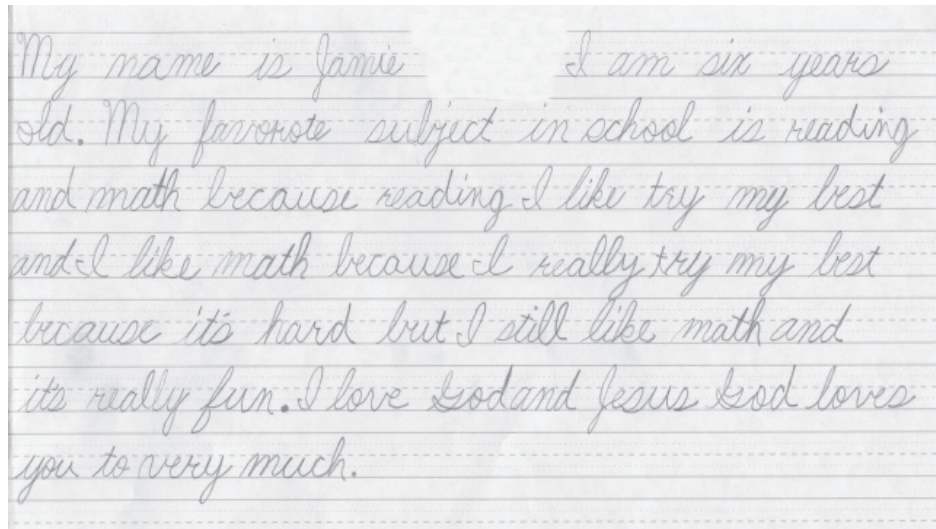 My name is Jamie I am six years
old. My favorote subject in school is reading
and math because reading I like try my best
and I like math because I really try my best
because it's hard but I still like math and
it's really fun. I love God and Jesus God loves
you to very much.